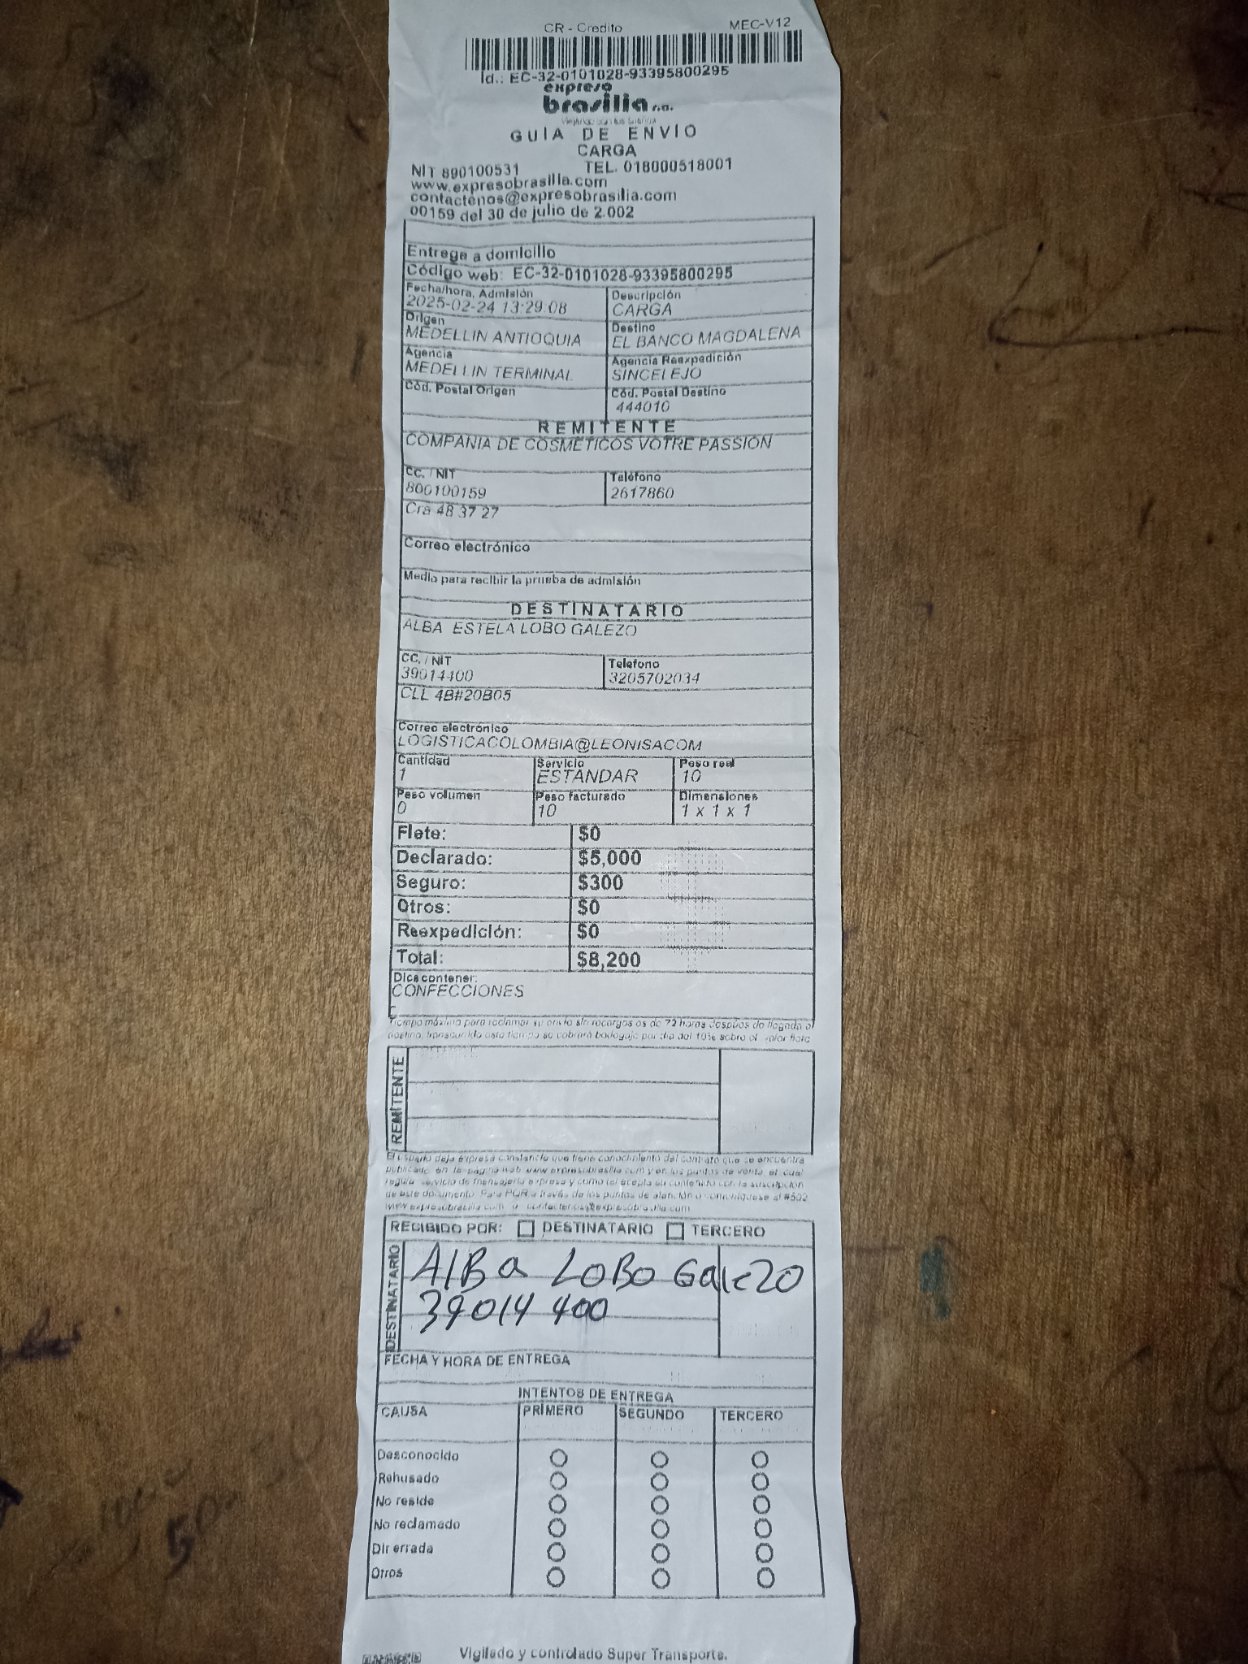 CR - Credito MEC-V12
Id.: EC-32-0101028-93395800295
expreso
brasilia s.a.
GUÍA DE ENVÍO
CARGA
NIT 890100531 TEL. 018000518001
www.expresobrasilia.com
contactenos@expresobrasilia.com
00159 del 30 de julio de 2.002
Entrega a domicilio
Código web: EC-32-0101028-93395800295
Fecha/hora, Admisión Descripción
2025-02-24 13:29:08 CARGA
Origen Destino
MEDELLIN ANTIOQUIA EL BANCO MAGDALENA
Agencia Agencia Reexpedición
MEDELLIN TERMINAL SINCELEJO
Cód. Postal Origen Cód. Postal Destino
444010
REMITENTE
COMPANIA DE COSMETICOS VOTRE PASSION
CC. / NIT Teléfono
800100159 2617860
Cra 48 37 27
Correo electrónico
Medio para recibir la prueba de admisión
DESTINATARIO
ALBA ESTELA LOBO GALEZO
CC. / NIT Telefono
39014400 3205702034
CLL 4B#20B05
Correo electrónico
LOGISTICACOLOMBIA@LEONISACOM
Cantidad Servicio Peso real
1 ESTANDAR 10
Peso volumen Peso facturado Dimensiones
0 10 1 x 1 x 1
Flete: $0
Declarado: $5,000
Seguro: $300
Otros: $0
Reexpedición: $0
Total: $8,200
Dice contener:
CONFECCIONES
Tiempo máximo para reclamar su envío sin recargos es de 72 horas después de llegada a
destino, transcurrido este tiempo se cobrará bodegaje por día del 10% sobre el valor flete
REMITENTE
El usuario deja expresa constancia que tiene conocimiento del contrato que se encuentra
publicado en la página web www.expresobrasilia.com y en los puntos de venta, el cual
regula servicio de mensajería expresa y como tal acepta su contenido con la suscripción
de este documento. Para PQR a través de los puntos de atención o comuníquese al #502
www.expresobrasilia.com o contactenos@expresobrasilia.com
RECIBIDO POR: DESTINATARIO TERCERO
DESTINATARIO
AlBa LOBO Galezo
39014 400
FECHA Y HORA DE ENTREGA
INTENTOS DE ENTREGA
CAUSA PRIMERO SEGUNDO TERCERO
Desconocido
Rehusado
No reside
No reclamado
Dir errada
Otros
Vigilado y controlado Super Transporte.